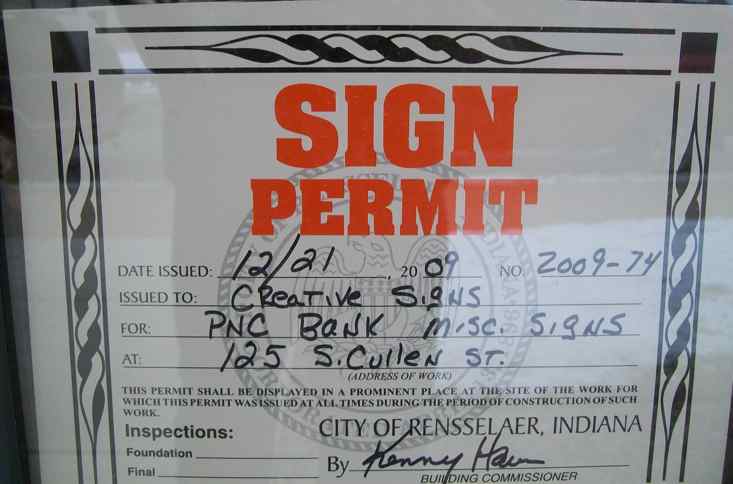 SIGN
PERMIT
DATE ISSUED: 12/21, 2009 NO. 2009-74
ISSUED TO: Creative Signs
FOR: PNC Bank Misc. Signs
AT: 125 S. Cullen St.
(ADDRESS OF WORK)
THIS PERMIT SHALL BE DISPLAYED IN A PROMINENT PLACE AT THE SITE OF THE WORK FOR
WHICH THIS PERMIT WAS ISSUED AT ALL TIMES DURING THE PERIOD OF CONSTRUCTION OF SUCH
WORK.
Inspections: CITY OF RENSSELAER, INDIANA
Foundation
Final By Kenny
BUILDING COMMISSIONER